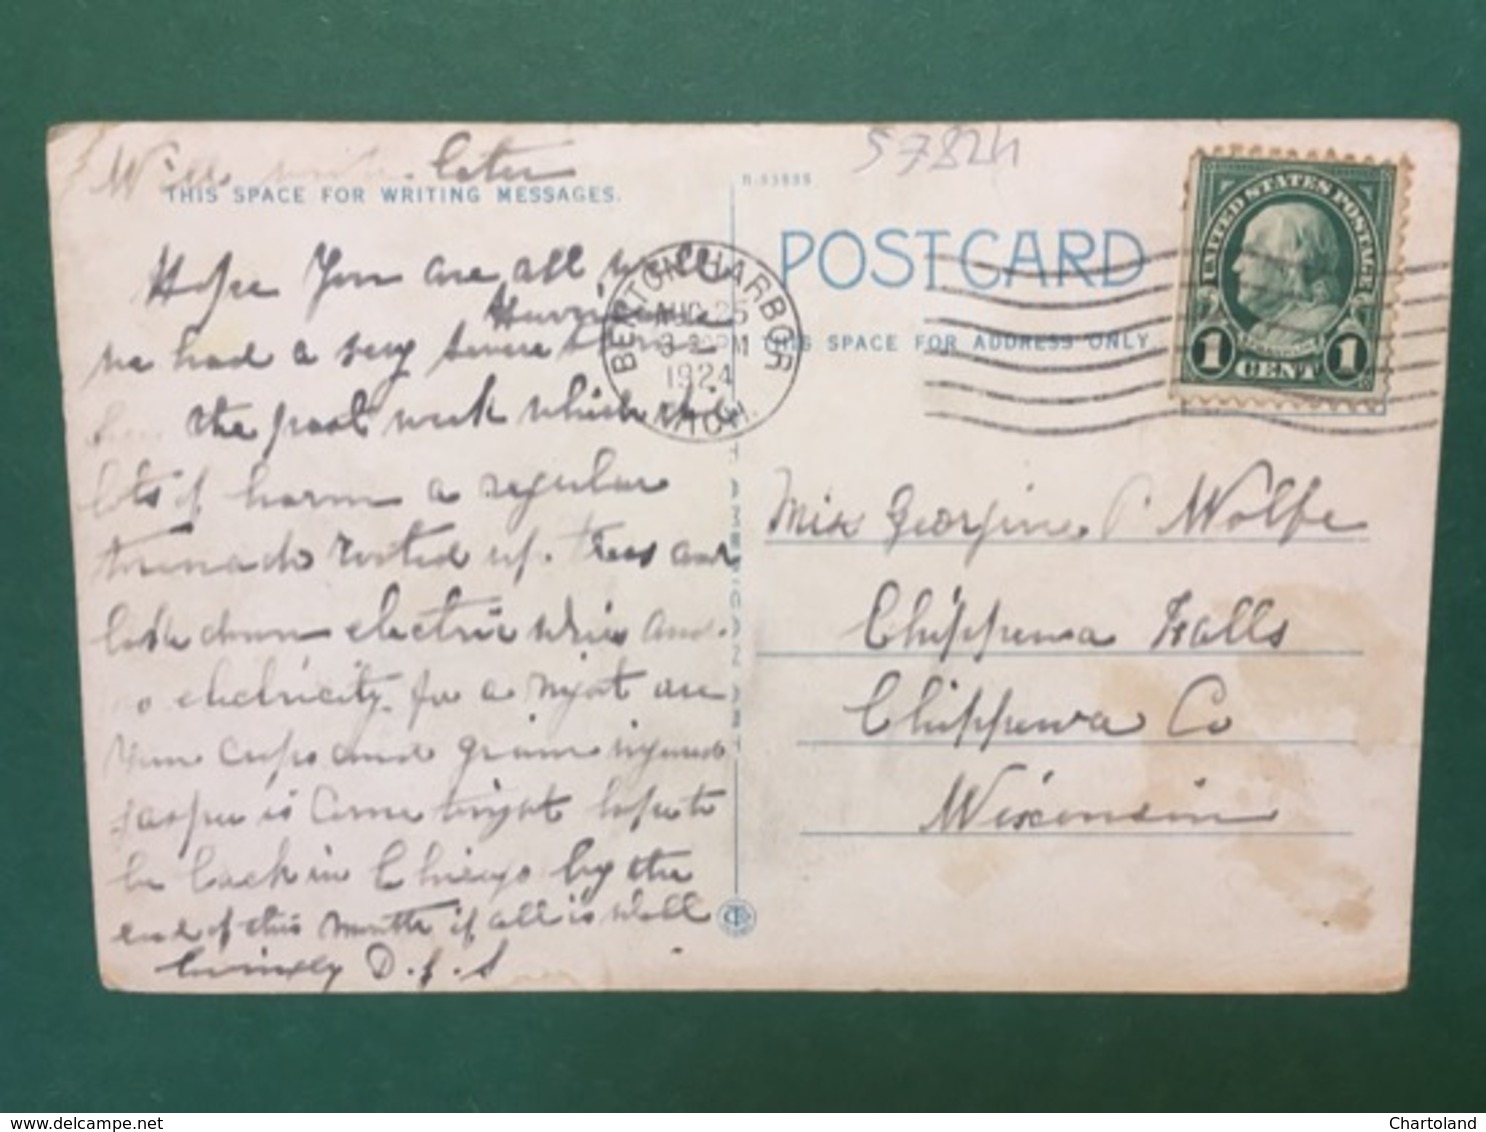 Will write later
THIS SPACE FOR WRITING MESSAGES.
Hope you are all well
Hurricane
we had a very severe storm
the past week which did
lots of harm a regular
tornado rooted up trees and
down electric wires and
no electricity for a night
crops and grain injured
is come tonight hope to
be back in Chicago by the
end of this month if all is well
lovingly D. S. S
R-93899
57824
POST CARD
THIS SPACE FOR ADDRESS ONLY.
BENTON HARBOR
AUG 25
1924
MICH.
UNITED STATES POSTAGE
FRANKLIN
1 CENT 1
Miss Georgine P Wolfe
Chippewa Falls
Chippewa Co
Wisconsin
CT AMERICAN ART
Chartoland